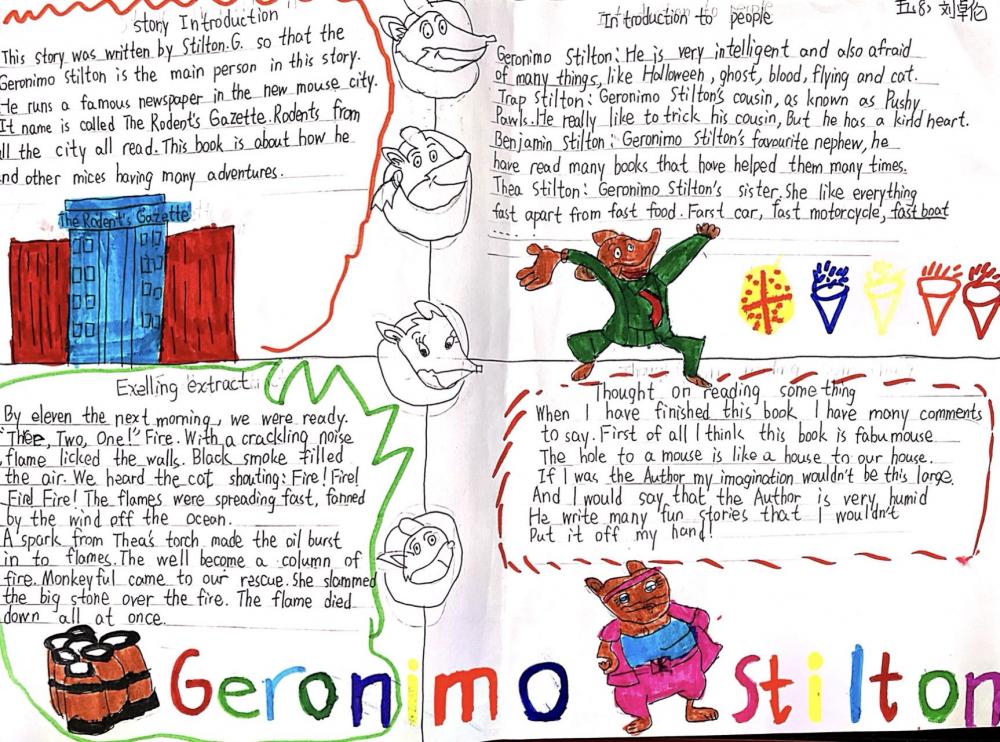 story Introduction
This story was written by Stilton.G. so that the
Geronimo Stilton is the main person in this story.
He runs a famous newspaper in the new mouse city.
It name is called The Rodent's Gazette. Rodents from
all the city all read. This book is about how he
and other mices having many adventures.
The Rodent's Gazette
Introduction to people
五(8) 刘卓伦
Geronimo Stilton: He is very intelligent and also afraid
of many things, like Halloween, ghost, blood, flying and cat.
Trap Stilton: Geronimo Stilton's cousin, as known as Pushy
Pawls. He really like to trick his cousin, But he has a kind heart.
Benjamin Stilton: Geronimo Stilton's favourite nephew, he
have read many books that have helped them many times.
Thea Stilton: Geronimo Stilton's sister. She like everything
fast apart from fast food. Farst car, fast motorcycle, fast boat
......
Exelling extract
By eleven the next morning, we were ready.
"Thee, Two, One!" Fire. With a crackling noise
flame licked the walls. Black smoke filled
the air. We heard the cat shouting: Fire! Fire!
Fire! Fire! The flames were spreading fast, fanned
by the wind off the ocean.
A spark from Thea's torch made the oil burst
in to flames. The well become a column of
fire. Monkeyful came to our rescue. She slammed
the big stone over the fire. The flame died
down all at once.
Thought on reading something
When I have finished this book I have many comments
to say. First of all I think this book is fabumouse
The hole to a mouse is like a house to our house.
If I was the Author my imagination wouldn't be this large.
And I would say that the Author is very humid
He write many fun stories that I wouldn't
Put it off my hand!
Geronimo Stilton